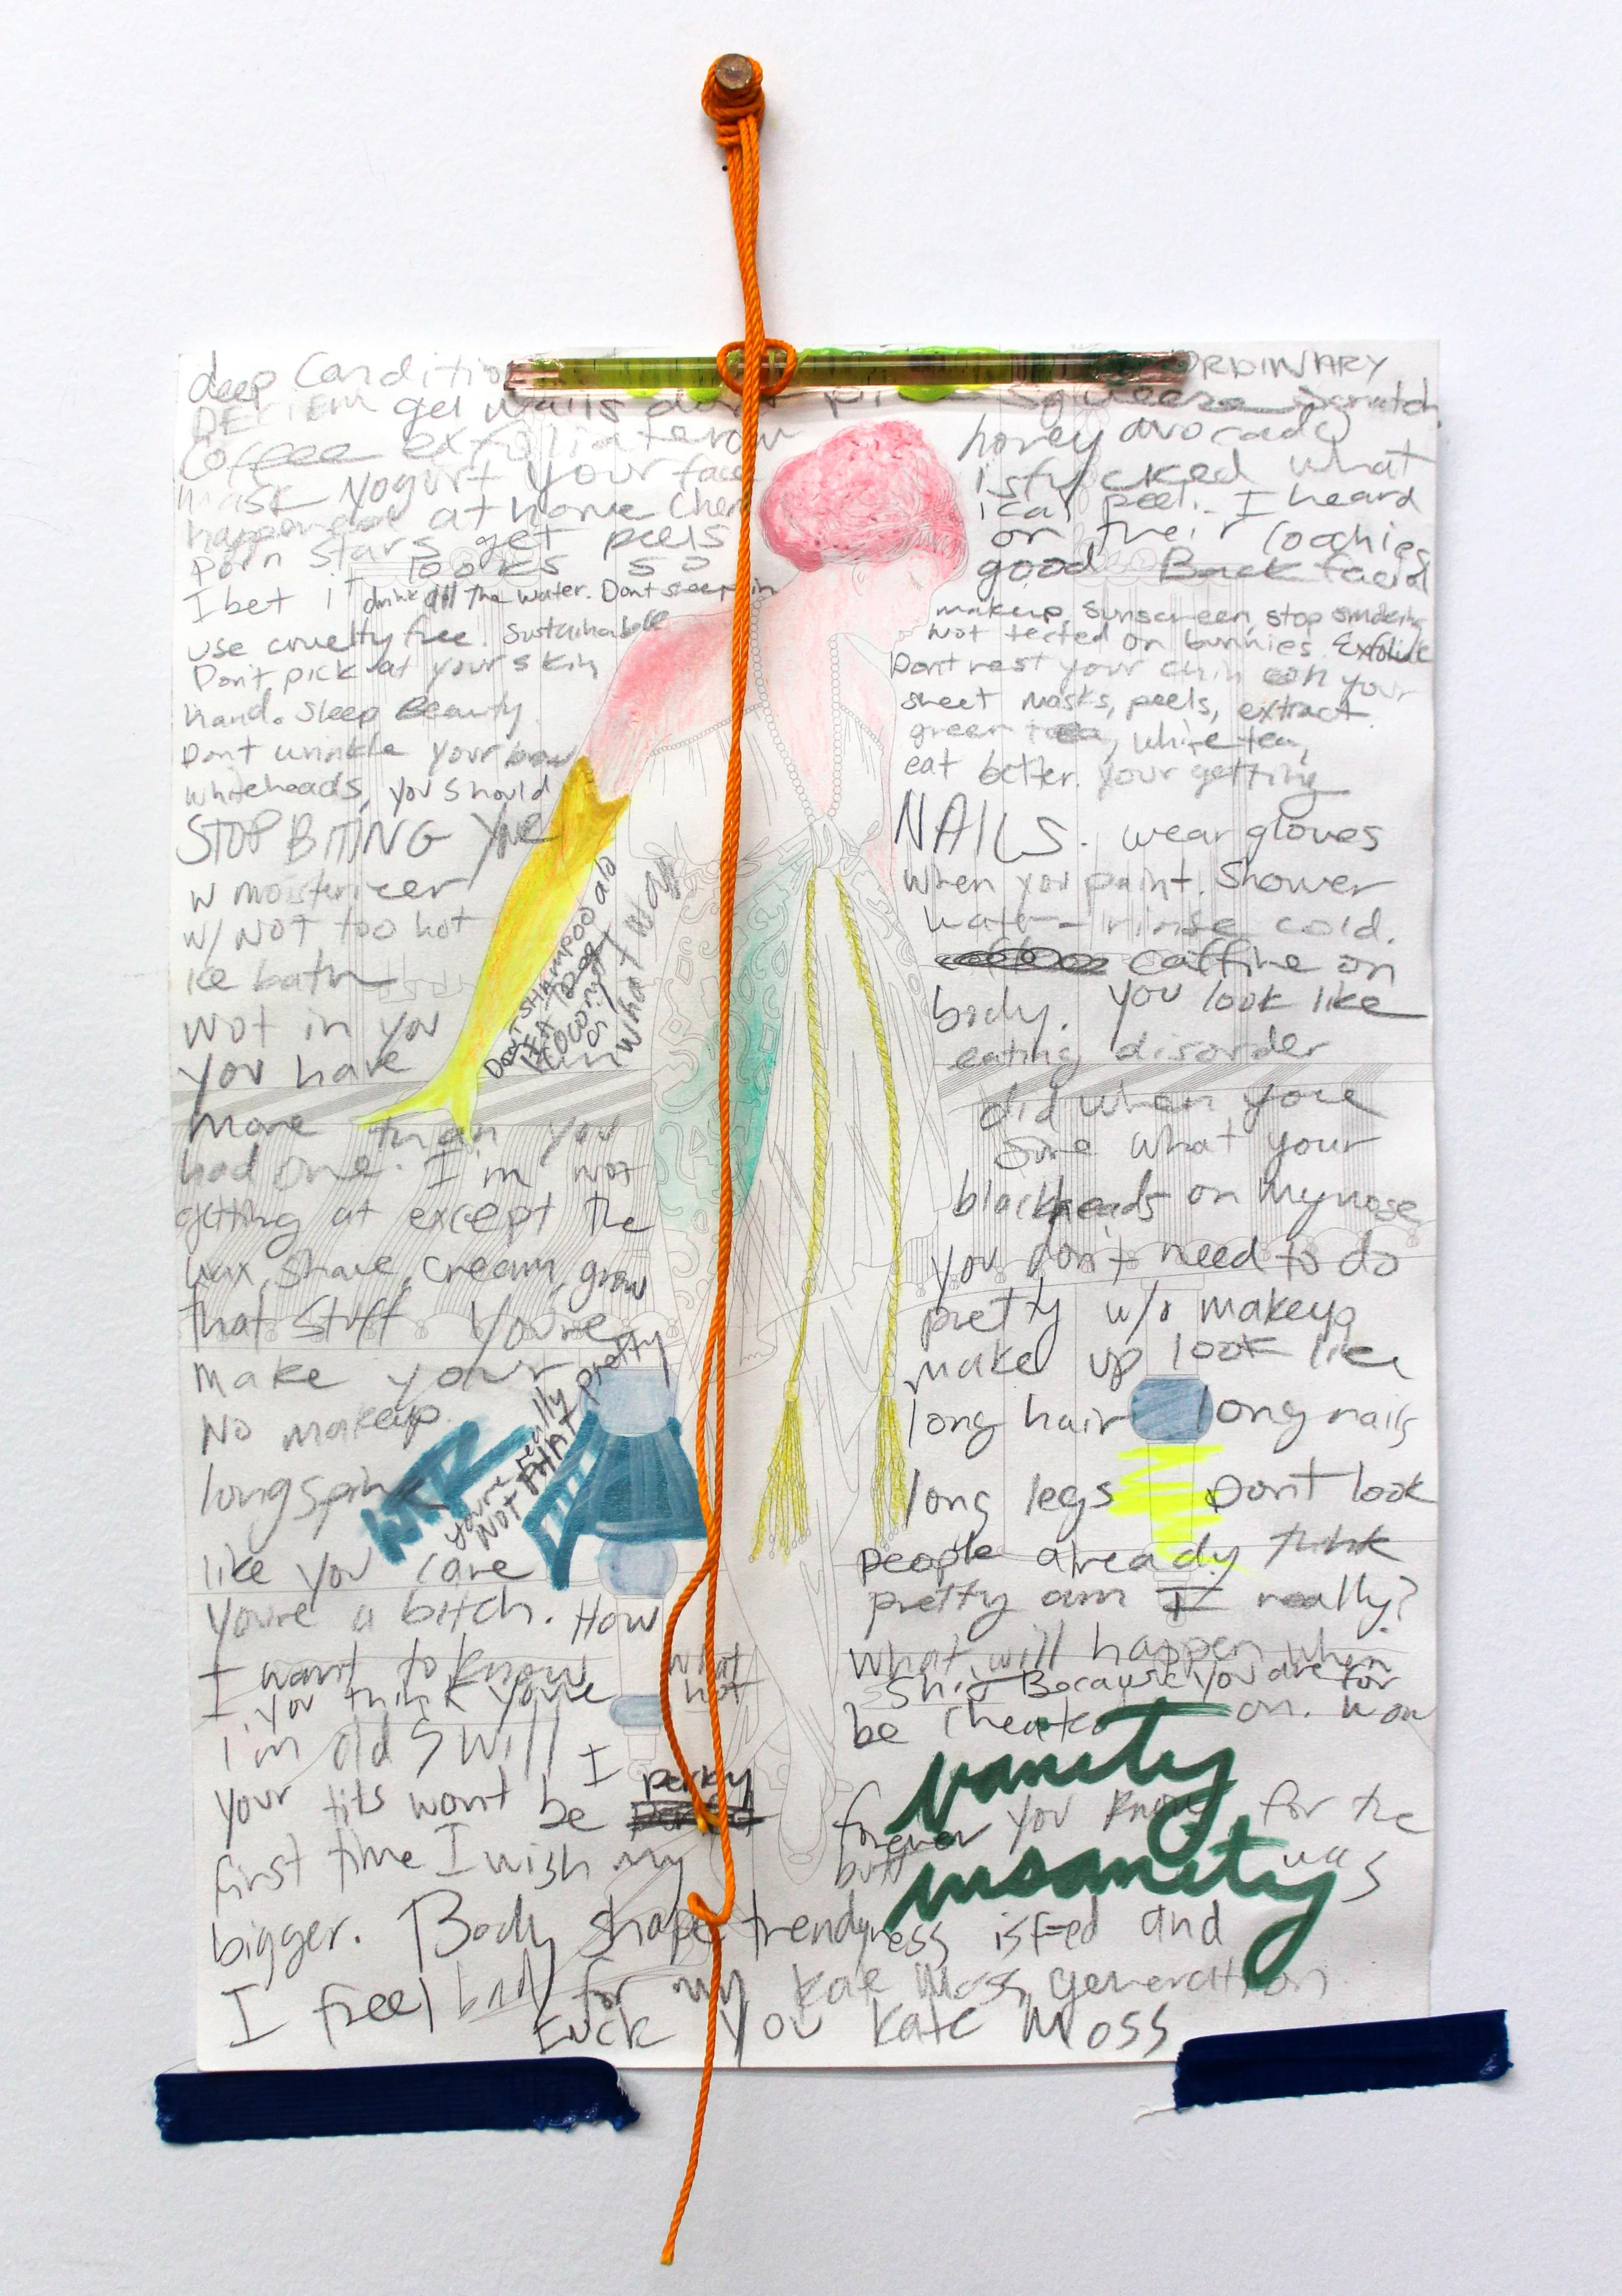 deep Conditio ORDINARY
DECIEM gel nails don't pi squeeze scratch
Coffee exfoliate honey avocado
mask yogurt your face is fucked what
happened at home chem ical peel. I heard
porn stars get peels on their coochies
I bet it looks so good Back facial
drink all the water. Dont sleep in makeup, sunscreen, stop smoking
use cruelty free. Sustainable Not tested on bunnies. Exfoliate
Don't pick at your skin Dont rest your chin on your
hand. Sleep Beauty. sheet masks, peels, extract
green tea, white tea,
Dont wrinkle your brow eat better. your getting
whiteheads, you should
STOP BITING NAILS. wear gloves
w moisturizer when you paint. Shower
w/ NOT too hot water - rinse cold.
ice bath caffine on
Not in you body. You look like
you have eating disorder
DON'T SHAMPOO
COCONUT
what
more than you did when you
had one. I'm not sure what your
getting at except the blackheads on my nose
wax, shave, cream, grow you don't need to do
that stuff You're pretty w/o makeup
make your make up look like
No makeup. long hair long nails
you're really pretty
NOT THAT
long spine long legs Don't look
like you care people already think
you're a bitch. How pretty am I really?
I want to know what will happen when
you think you're what not Because you are for
I'm old & will I be cheated on.
your tits wont be perky forever you know for the
vanity
first time I wish my butt was
insanity
bigger. Body shape trendyness is F-ed and
I feel bad for my Kate Moss generation
FUCK You Kate Moss